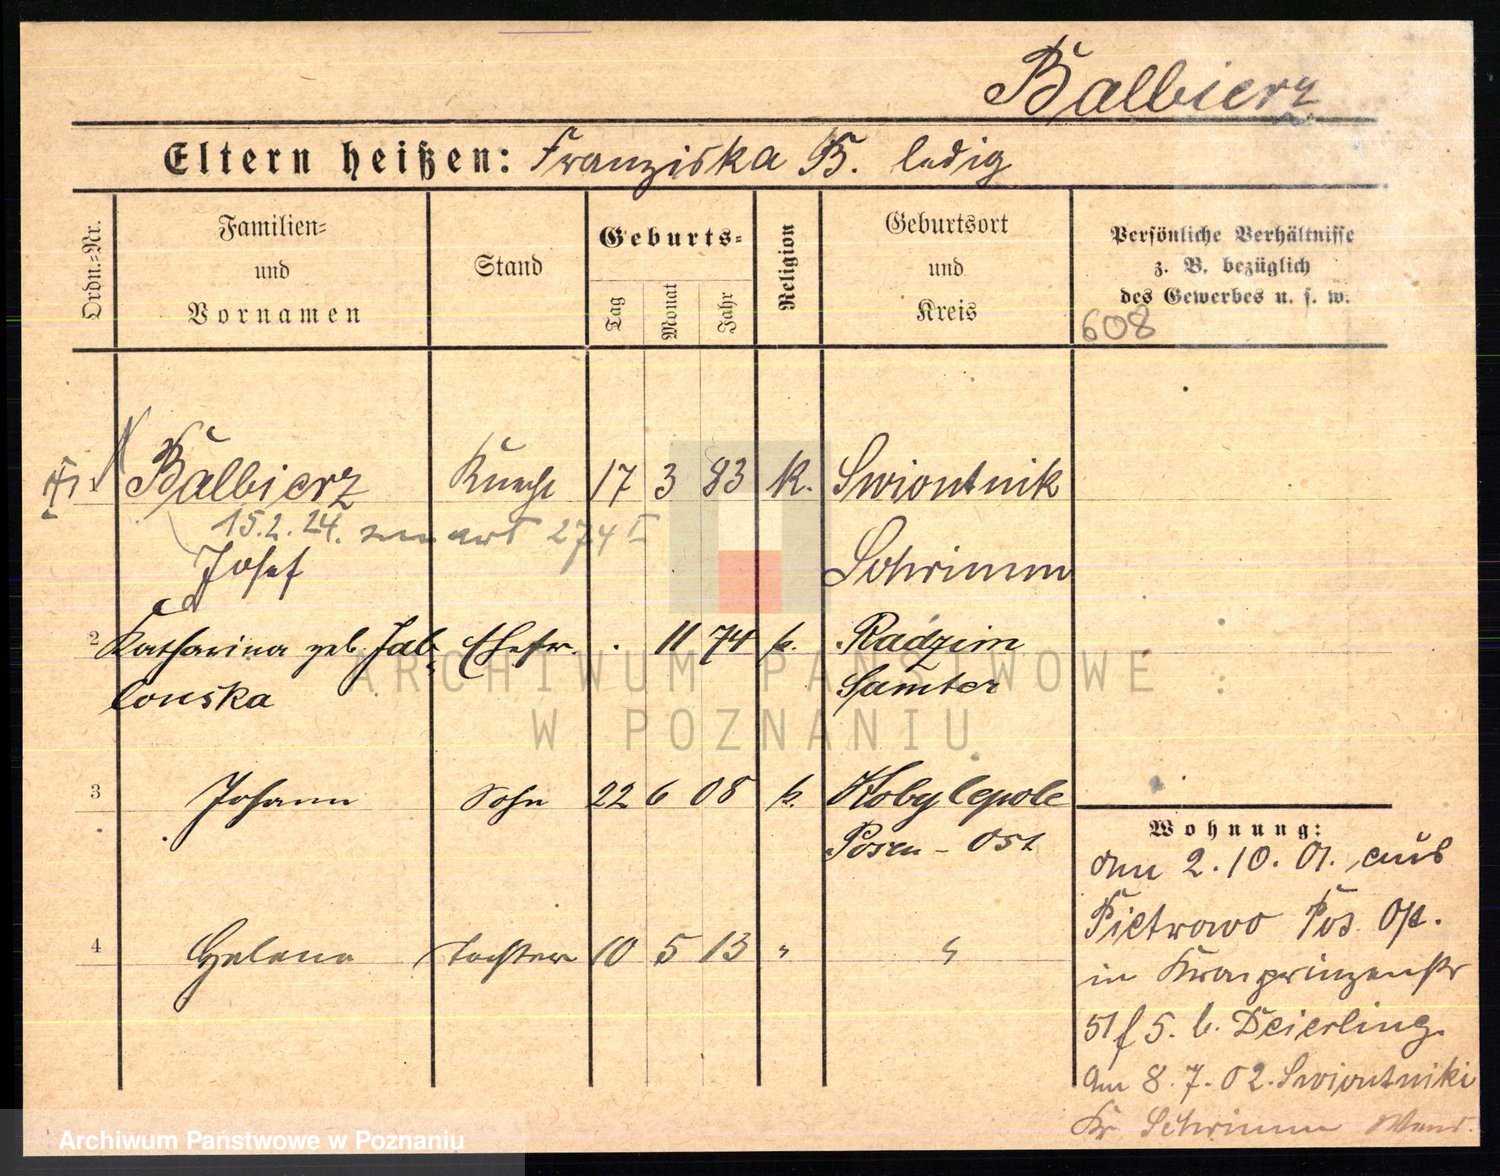 Balbierz
Eltern heißen: Franziska B. ledig
Ordn.-Nr.
Familien-
und
Vornamen
Stand
Geburts-
Tag
Monat
Jahr
Religion
Geburtsort
und
Kreis
Persönliche Verhältnisse
z. B. bezüglich
des Gewerbes u. s. w.
608
1 Balbierz Knecht 17 3 83 k. Swiontnik
15.2.24. 274 I
Josef Schrimm
2 Katharina geb. Jab- Ehefr. . 11 74 k. Radzim
lonska Samter
3 Johann Sohn 22 6 08 k. Kobylepole
Posen - Ost
4 Helena Tochter 10 5 13 " "
Wohnung:
am 2.10.01. aus
Pietrowo Pos. Op.
in Kronprinzenstr
51 f 5. b. Deierling.
am 8.7.02. Swiontniki
Kr Schrimm
ARCHIWUM PAŃSTWOWE
W POZNANIU
Archiwum Państwowe w Poznaniu